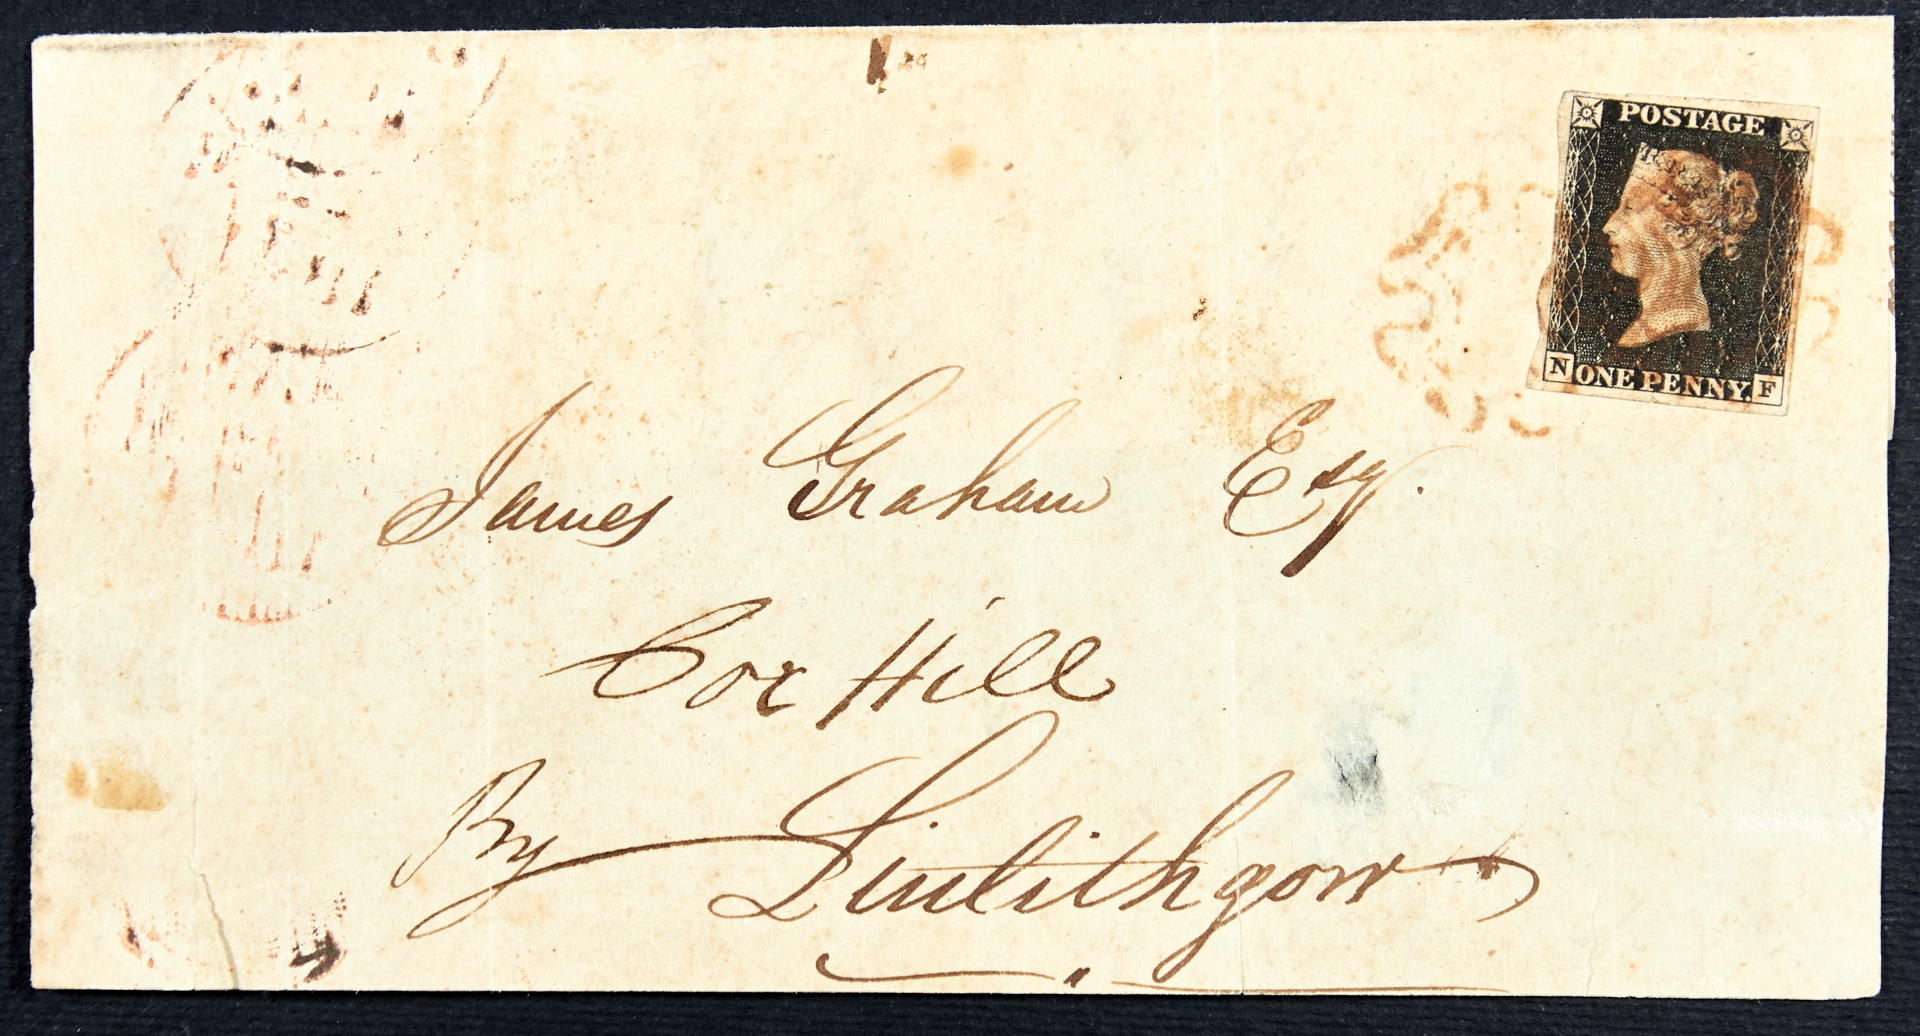 POSTAGE
N ONE PENNY. F
James Graham Esq.
Cox Hill
By Linlithgow